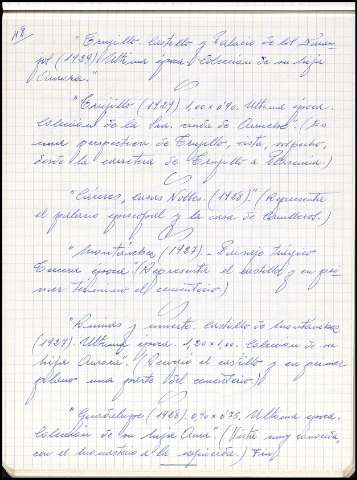 "Trujillo. Castillo y Palacio de los
(1929). Ultima época. Coleccion de su hija
Aurora."
"Trujillo (1929) 1,00 x 0,90. Ultima época.
Colección de la Sra. viuda de (Es
una perspectiva de Trujillo, vista,
desde la carretera de Trujillo a Plasencia)
"Cáceres, Casas Nobles. (1926)." (Representa
el palacio episcopal y la casa de
"Montánchez (1927). - Paisaje trágico
Tercera época (Representa el castillo y en pri
mer termino el cementerio.)
"Ruinas y muerte. Castillo de Montánchez
(1927). Ultima época. 1,20 x 1,00. Coleccion de su
hija Aurora". ( el castillo y en primer
plano una puerta del cementerio.)
"Guadalupe (1926). 0,90 x 0,75. Ultima época.
Colección de su hija (Vista muy conocida,
con el monasterio a la izquierda.) Fin